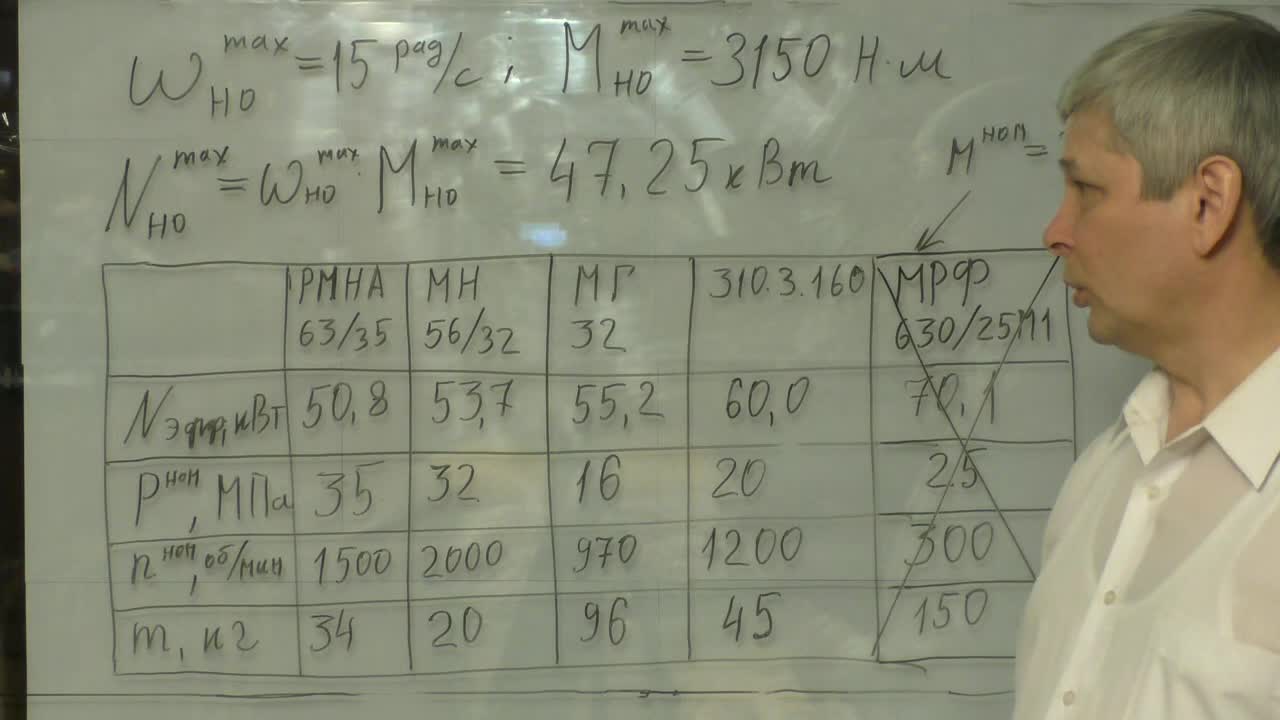 ω_НО^max = 15 рад/с ; M_НО^max = 3150 Н·м
N_НО^max = ω_НО^max · M_НО^max = 47,25 кВт
M^ном =
РМНА 63/35 МН 56/32 МГ 32 310.3.160 МРФ 630/25М1
N эфф, кВт 50,8 53,7 55,2 60,0 70,1
P^ном, МПа 35 32 16 20 25
n^ном, об/мин 1500 2000 970 1200 300
m, кг 34 20 96 45 150